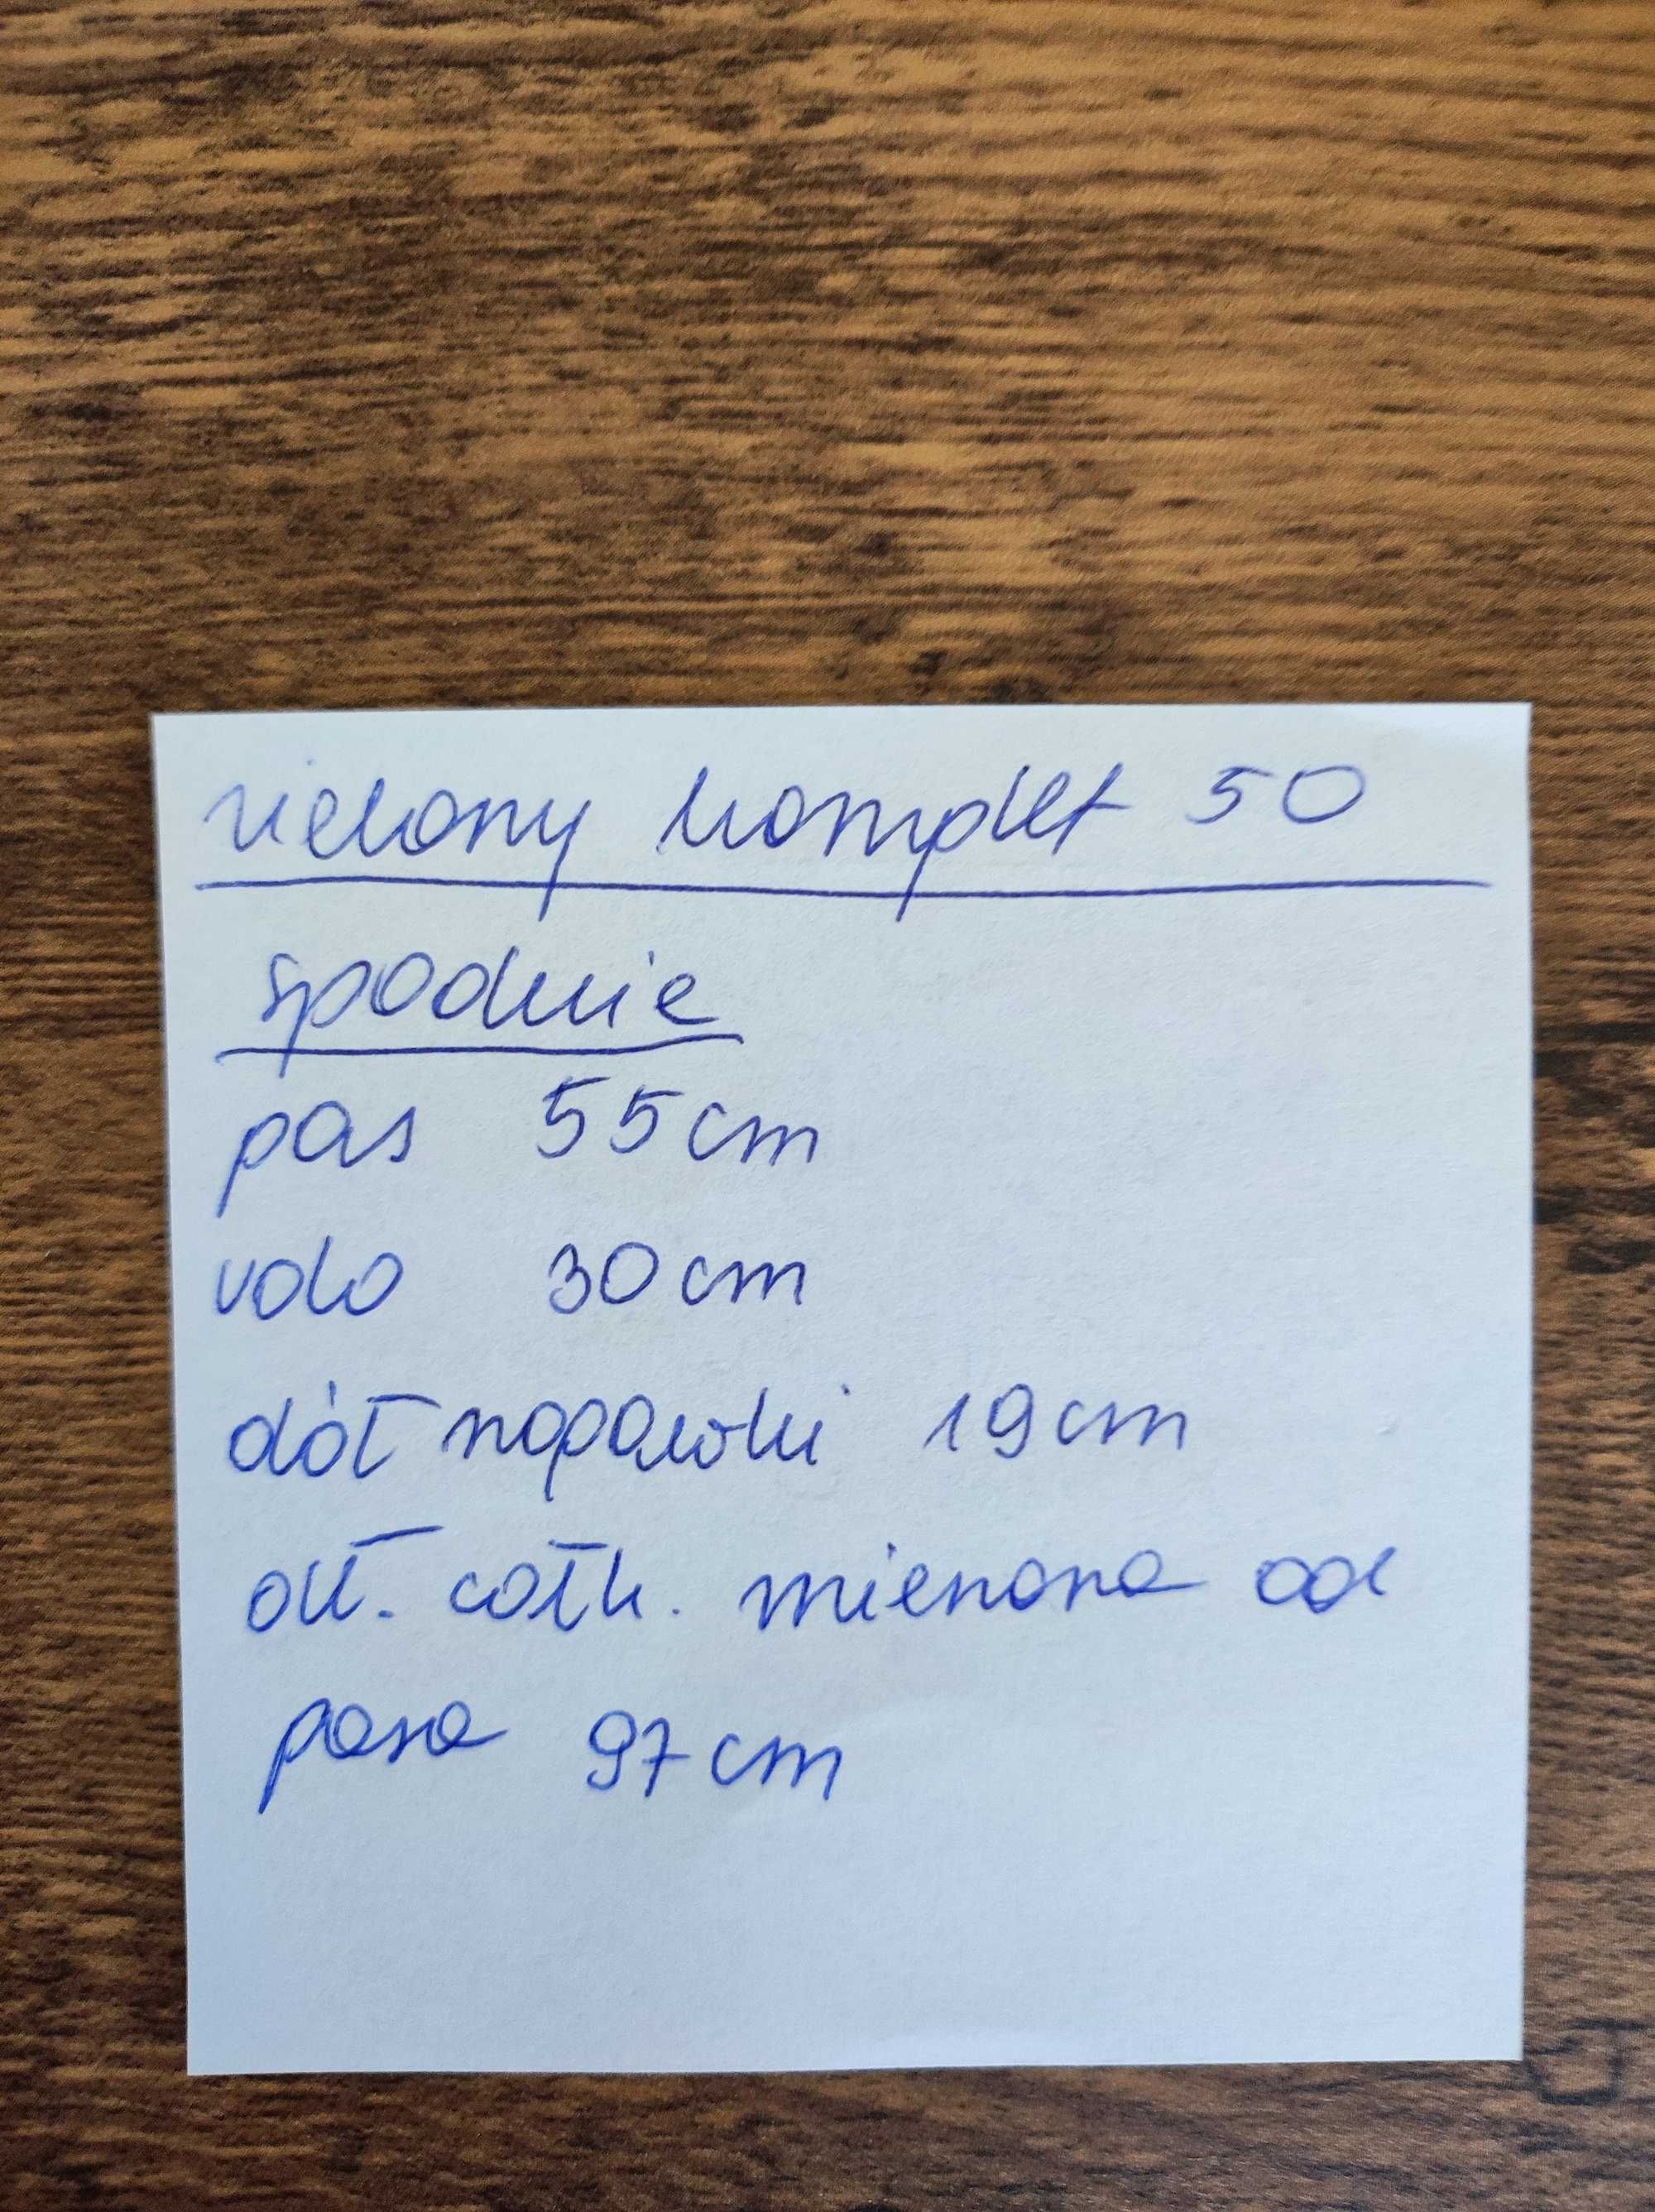 zielony komplet 50
spodnie
pas 55cm
udo 30cm
dół nogawki 19cm
dł. całk. mierzona od
pasa 97cm